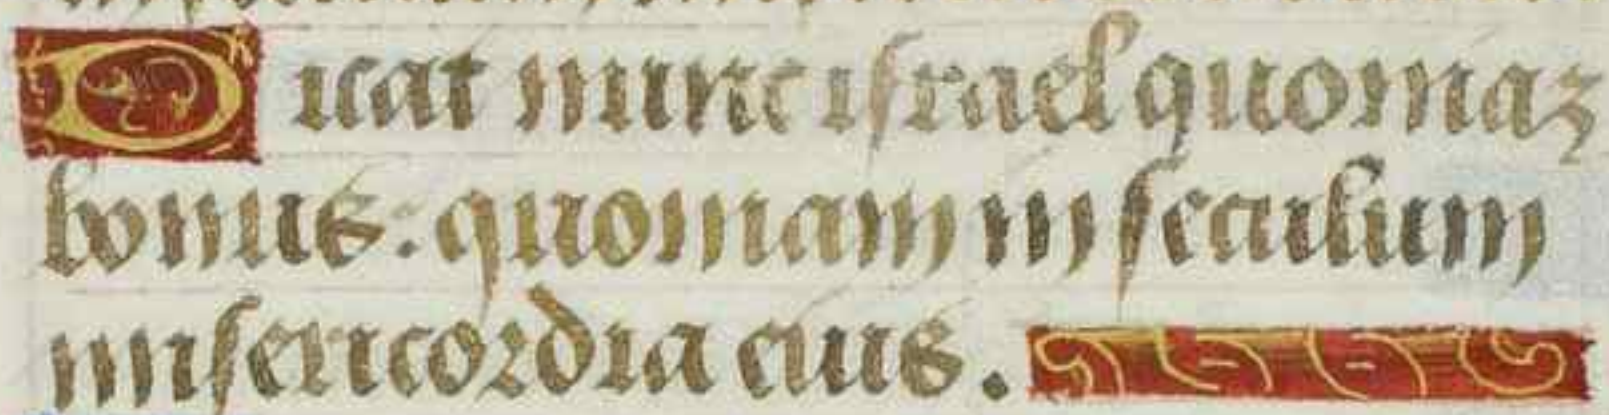 Dicat nunc israel quoniaʒ
bonus: quoniam in seculum
misericordia eius.